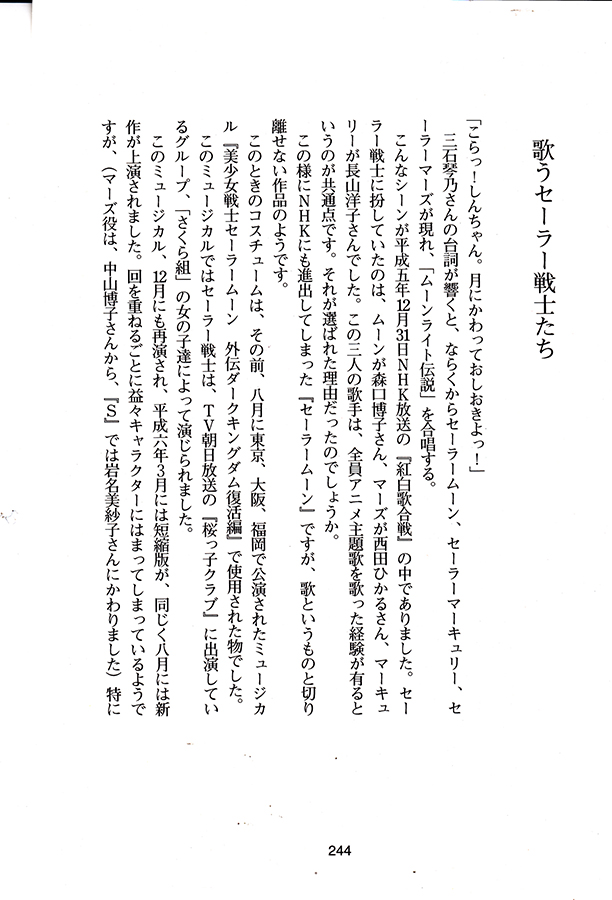 歌うセーラー戦士たち
「こらっ!しんちゃん。月にかわっておしおきよっ!」
三石琴乃さんの台詞が響くと、ならくからセーラームーン、セーラーマーキュリー、セ
ーラーマーズが現れ、「ムーンライト伝説」を合唱する。
こんなシーンが平成五年12月31日NHK放送の『紅白歌合戦』の中でありました。セー
ラー戦士に扮していたのは、ムーンが森口博子さん、マーズが西田ひかるさん、マーキュ
リーが長山洋子さんでした。この三人の歌手は、全員アニメ主題歌を歌った経験が有ると
いうのが共通点です。それが選ばれた理由だったのでしょうか。
この様にNHKにも進出してしまった『セーラームーン』ですが、歌というものと切り
離せない作品のようです。
このときのコスチュームは、その前、八月に東京、大阪、福岡で公演されたミュージカ
ル『美少女戦士セーラームーン 外伝ダークキングダム復活編』で使用された物でした。
このミュージカルではセーラー戦士は、TV朝日放送の『桜っ子クラブ』に出演してい
るグループ、「さくら組」の女の子達によって演じられました。
このミュージカル、12月にも再演され、平成六年3月には短縮版が、同じく八月には新
作が上演されました。回を重ねるごとに益々キャラクターにはまってしまっているようで
すが、(マーズ役は、中山博子さんから、『S』では岩名美紗子さんにかわりました)特に
244